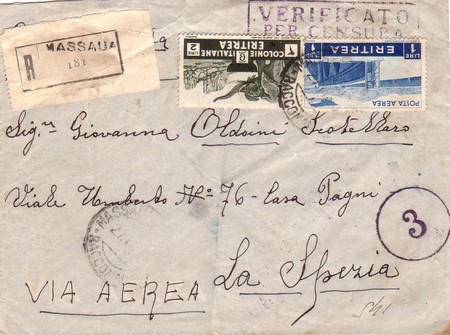 VERIFICATO
PER CENSURA
R
MASSAUA
181
2 LIRE
COLONIE ITALIANE
ERITREA
1 LIRE
ERITREA
POSTA AEREA
Sig.ra Giovanna Oldoini Scotellaro
Viale Umberto No 76 - Casa Pagni
3
MASSAUA
RACCOM
La Spezia
VIA AEREA